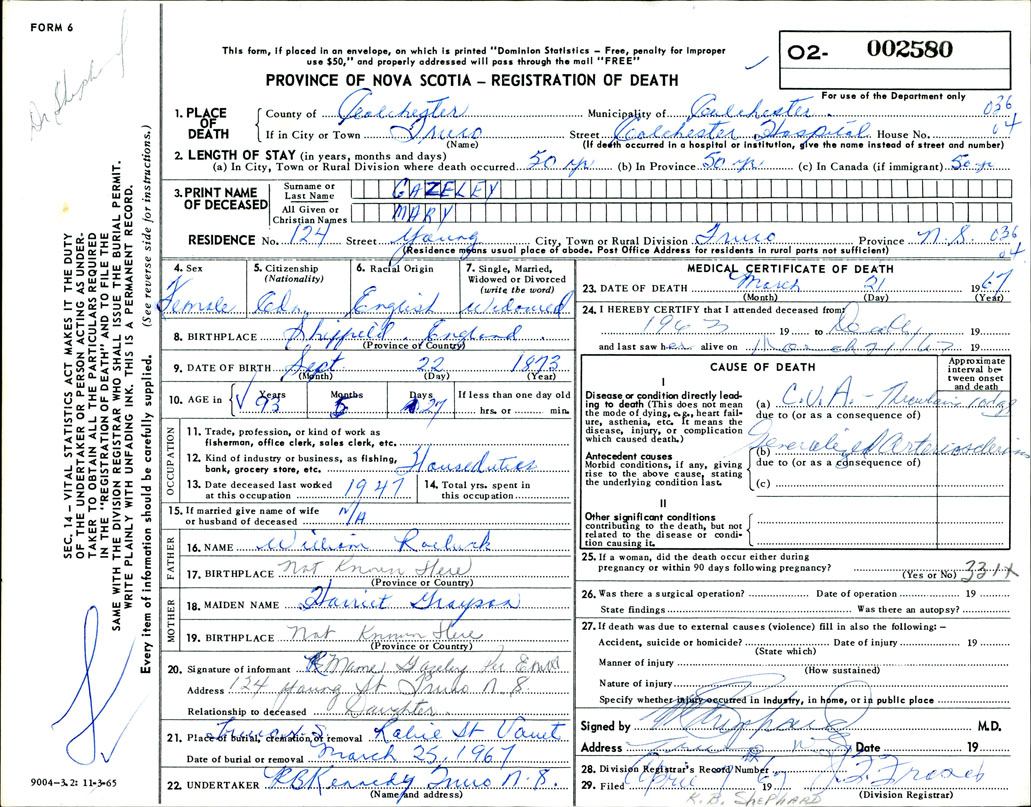 FORM 6
Dr Shephard
This form, if placed in an envelope, on which is printed "Dominion Statistics – Free, penalty for improper
use $50," and properly addressed will pass through the mail "FREE"
O2- 002580
For use of the Department only
PROVINCE OF NOVA SCOTIA – REGISTRATION OF DEATH
1. PLACE OF DEATH
County of Colchester Municipality of Colchester 036
If in City or Town Truro Street Colchester Hospital House No. 04
(Name) (If death occurred in a hospital or institution, give the name instead of street and number)
2. LENGTH OF STAY (in years, months and days)
(a) In City, Town or Rural Division where death occurred 50 yr (b) In Province 50 yr (c) In Canada (if immigrant) 50 yr
3. PRINT NAME OF DECEASED
Surname or Last Name GAZELEY
All Given or Christian Names MARY
RESIDENCE No. 124 Street Young City, Town or Rural Division Truro Province N.S. 036
(Residence means usual place of abode. Post Office Address for residents in rural parts not sufficient) 04
4. Sex Female
5. Citizenship (Nationality) Cdn.
6. Racial Origin English
7. Single, Married, Widowed or Divorced (write the word) Widowed
8. BIRTHPLACE Sheffield, England
(Province or Country)
9. DATE OF BIRTH Sept 22 1873
(Month) (Day) (Year)
10. AGE in Years 93 Months 5 Days 27 If less than one day old hrs. or min.
OCCUPATION
11. Trade, profession, or kind of work as
fisherman, office clerk, sales clerk, etc.
12. Kind of industry or business, as fishing,
bank, grocery store, etc. Houseduties
13. Date deceased last worked
at this occupation 1947
14. Total yrs. spent in
this occupation
15. If married give name of wife
or husband of deceased N/A
FATHER
16. NAME William
17. BIRTHPLACE Not Known Here
(Province or Country)
MOTHER
18. MAIDEN NAME Harriet Grayson
19. BIRTHPLACE Not Known Here
(Province or Country)
20. Signature of informant Gazeley Per
Address 124 Young St Truro N.S.
Relationship to deceased Daughter
21. Place of burial, cremation, or removal Truro Robie St Vault
Date of burial or removal March 25, 1967
22. UNDERTAKER R B Kennedy Truro N.S.
(Name and address)
MEDICAL CERTIFICATE OF DEATH
23. DATE OF DEATH March 21 1967
(Month) (Day) (Year)
24. I HEREBY CERTIFY that I attended deceased from
196 19 to Death 19
and last saw her alive on March 21/67 19
CAUSE OF DEATH
Approximate interval between onset and death
I
Disease or condition directly leading
to death (This does not mean
the mode of dying, e.g., heart failure,
asthenia, etc. It means the
disease, injury, or complication
which caused death.)
(a) C.V.A. - Thrombosis 10 days
due to (or as a consequence of)
Antecedent causes
Morbid conditions, if any, giving
rise to the above cause, stating
the underlying condition last.
(b) Generalized Arteriosclerosis
due to (or as a consequence of)
(c)
II
Other significant conditions
contributing to the death, but not
related to the disease or condition
causing it.
25. If a woman, did the death occur either during
pregnancy or within 90 days following pregnancy?
(Yes or No) 331X
26. Was there a surgical operation? Date of operation 19
State findings Was there an autopsy?
27. If death was due to external causes (violence) fill in also the following: –
Accident, suicide or homicide? Date of injury 19
(State which)
Manner of injury
(How sustained)
Nature of injury
Specify whether injury occurred in Industry, in home, or in public place
Signed by M.D.
Address Truro Date 19
28. Division Registrar's Record Number
29. Filed April 19 67
K. B. SHEPHARD (Division Registrar)
SEC. 14 – VITAL STATISTICS ACT MAKES IT THE DUTY
OF THE UNDERTAKER OR PERSON ACTING AS UNDER-
TAKER TO OBTAIN ALL THE PARTICULARS REQUIRED
IN THE "REGISTRATION OF DEATH" AND TO FILE THE
SAME WITH THE DIVISION REGISTRAR WHO SHALL ISSUE THE BURIAL PERMIT.
WRITE PLAINLY WITH UNFADING INK. THIS IS A PERMANENT RECORD.
Every item of information should be carefully supplied. (See reverse side for instructions.)
9004–3.2: 11-3-65